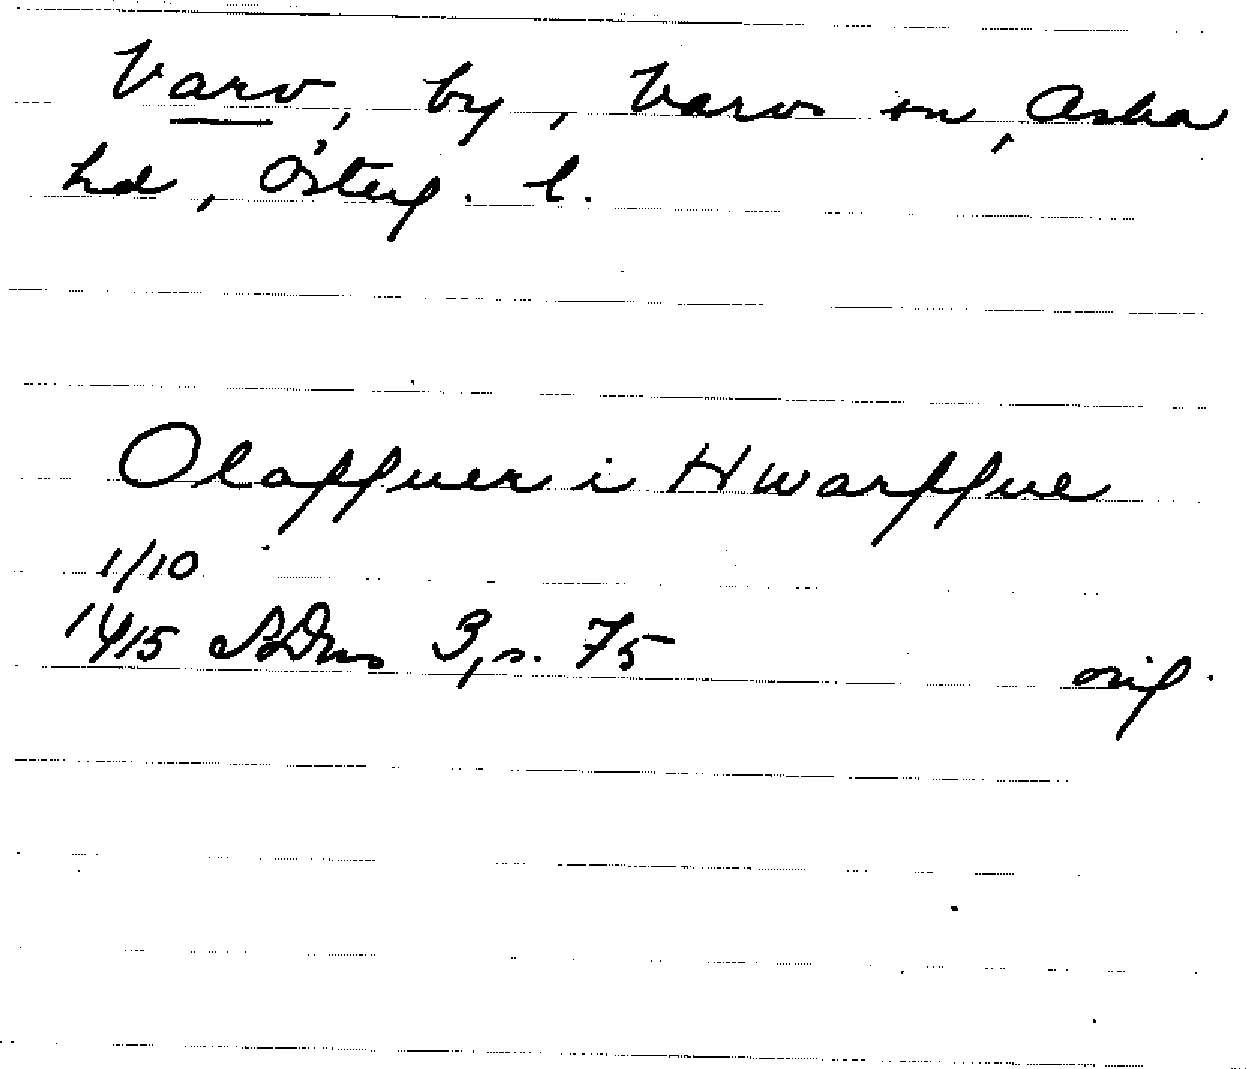 Varv, by, Varvs sn, Aska
hd, Österg. l.
Olaffuer i Hwarffue
1/10
1415 SDns 3, s. 75 orig.